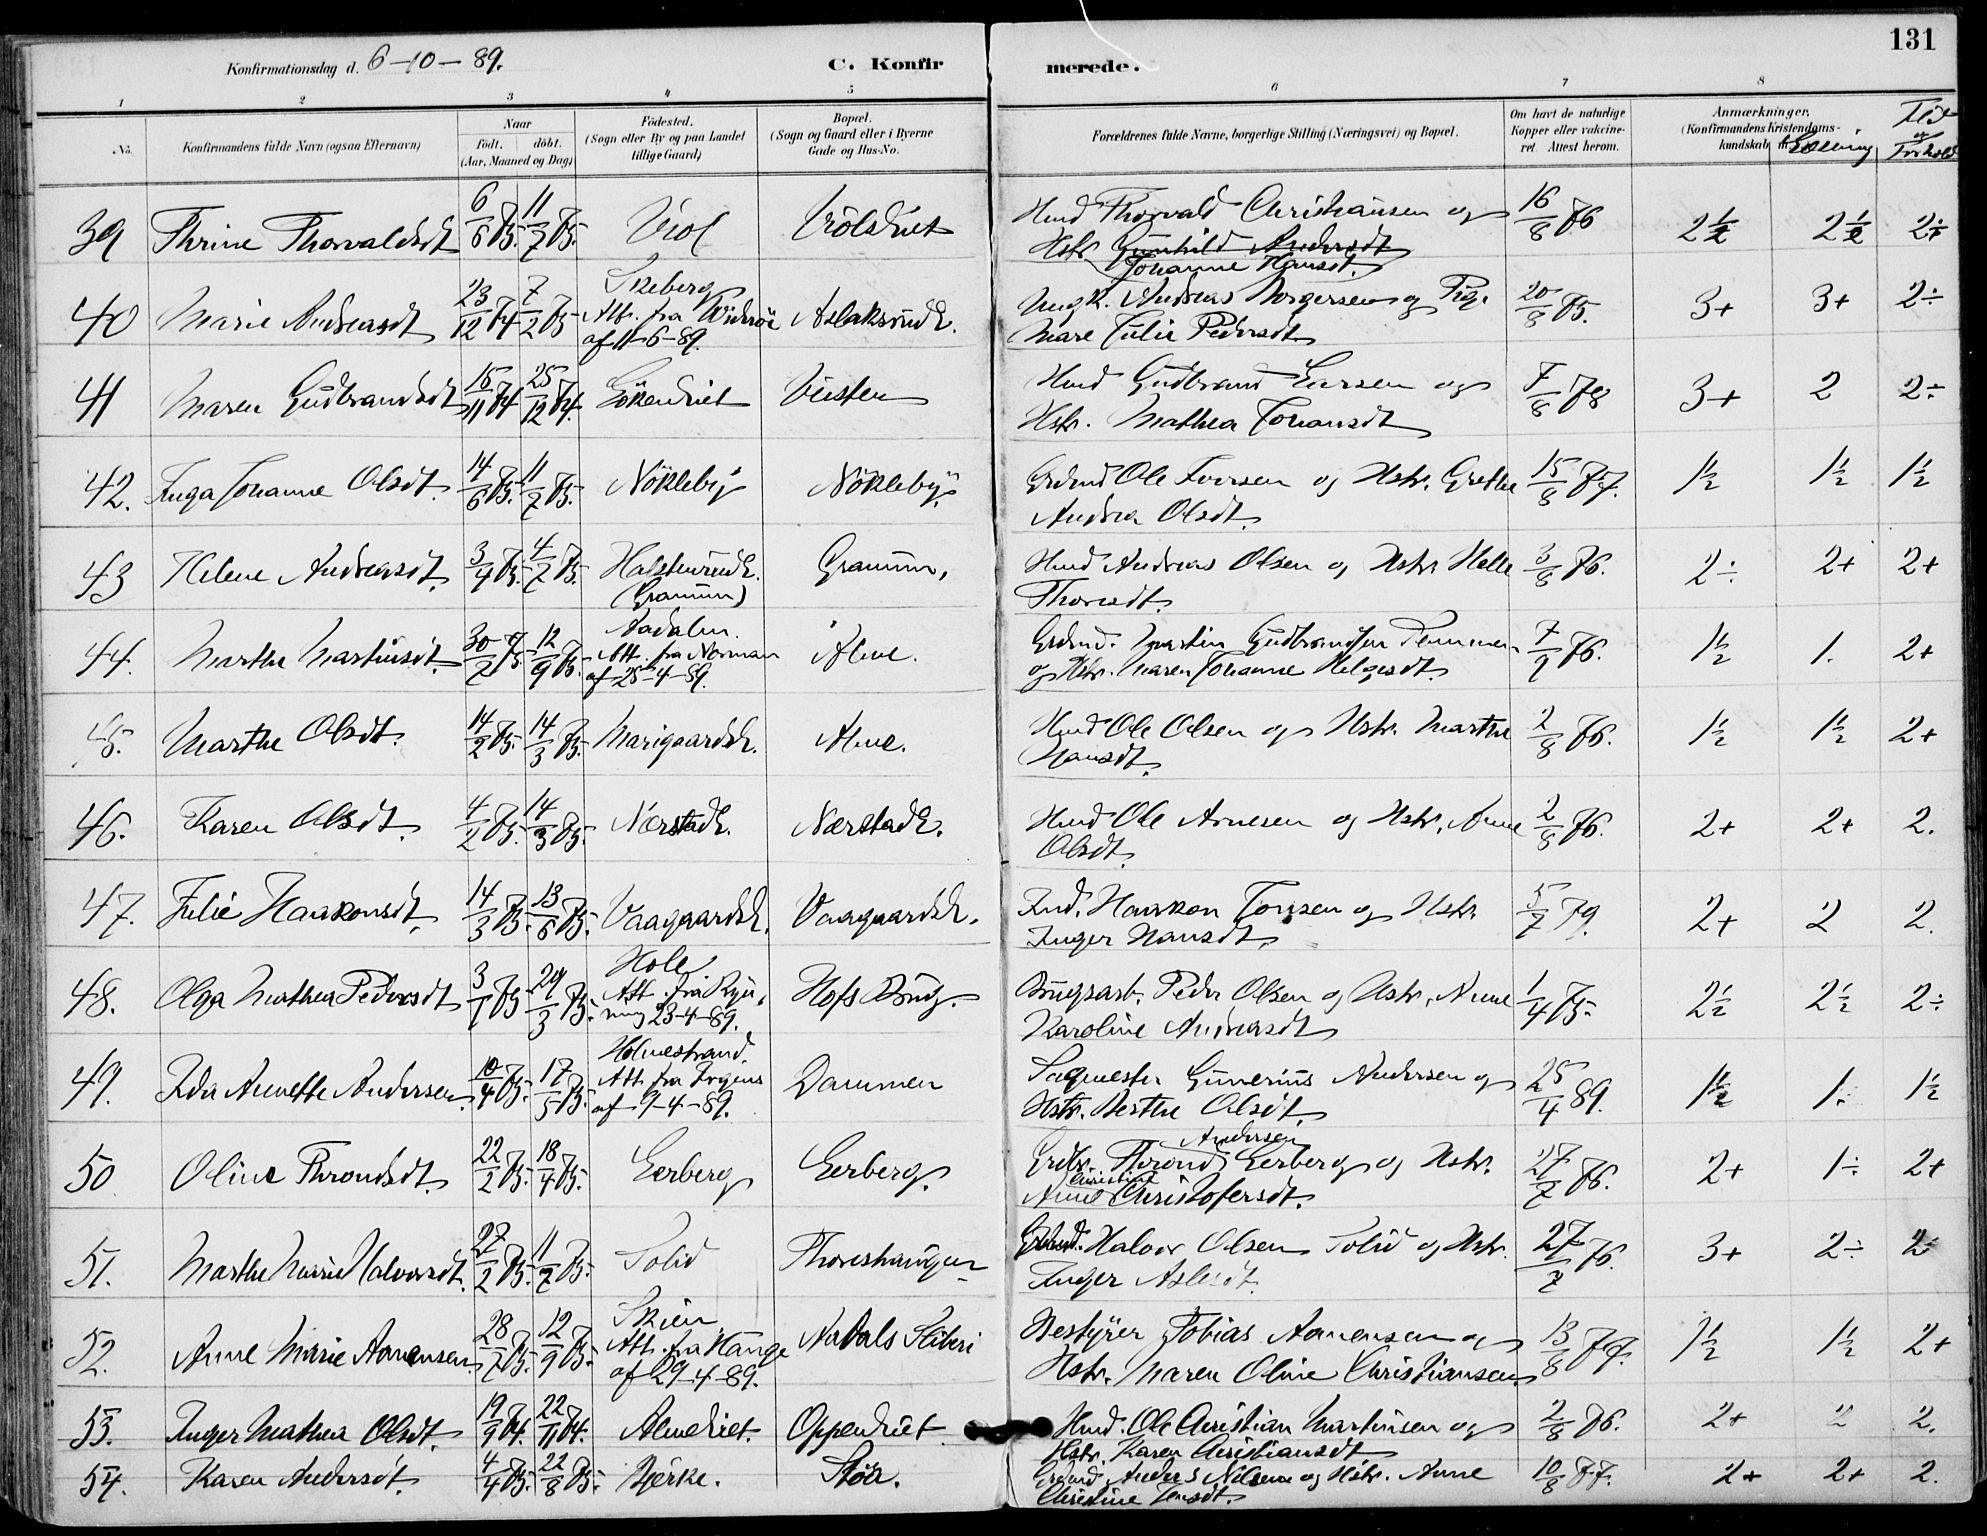 131
Konfirmationsdag d. 6-10-89. C. Konfirmerede.
1 2 3 4 5 6 7 8
No. Konfirmandens fulde Navn (ogsaa Efternavn) Naar født. døbt. (Aar, Maaned og Dag) Fødested. (Sogn eller By og paa Landet tillige Gaard) Bopæl. (Sogn og Gaard eller i Byerne Gade og Hus-No. Forældrenes fulde Navne, borgerlige Stilling (Næringsvei) og Bopæl. Om havt de naturlige Kopper eller vakcineret. Attest herom. Anmærkninger. (Konfirmandens Kristendomskundskab Læsning Flid og Forhold
39 Thrine Thorvaldsdt 6/6 75. 11/7 75. Viol Violseiet Hmd Thorvald Christiansen og 16/8 76 2½ 2½ 2÷
Hstr. Gunhild Andersdt
Johanne Hansdt.
40 Marie Andreasdt 23/12 74 7/2 75 Skeberg Aslaksrudk. Ungk. Andreas Borgersen og Pig. 20/8 75. 3+ 3+ 2÷
Att. fra Widerøe Mare Julie Pedersdt.
af 11-6-89.
41 Maren Gudbrandsdt 15/11 74 25/12 74. Løkeneiet Veisten Hmd Gudbrand Larsen og 7/8 78 3+ 2 2÷
Hstr. Mathea Johansdt
42. Inga Johanne Olsdt. 14/6 75. 11/7 75. Nökleby Nökleby. Grdmd Ole Iversen og Hstr. Grethe 15/8 77. 1½ 1½ 1½
Andrea Olsdt.
43 Helene Andreasdt. 3/4 75. 4/7 75. Halstenrudk. Gramum, Hmd Andreas Olsen og Hstr. Helle 3/8 76. 2÷ 2+ 2+
(Gramum) Thoresdt.
44. Marthe Martinsdt. 30/7 75 12/9 75. Aadalen. Alme. Grdmd. Martin Gudbrandsen 7/7 76. 1½ 1. 2+
Att. fra Norman og Hstr. Maren Johanne Helgesdt.
af 25-4-89.
45. Marthe Olsdt. 14/2 75. 14/3 75. Marigaardsk. Alme. Hmd Ole Olsen og Hstr. Marthe 2/8 76. 1½ 1½ 2+
Hansdt.
46. Karen Olsdt. 4/2 75. 14/3 75. Nærstadk. Nærstadk. Hmd Ole Arnesen og Hstr. Anne 2/8 76. 2+ 2+ 2.
Olsdt.
47. Julie Haakonsdt. 14/3 75. 13/6 75. Vaagaardsk. Vaagaardsk. Ind. Haakon Jonsen og Hstr. 5/7 79. 2+ 2 2.
Inger Hansdt.
48. Olga Mathea Pedersdt 3/1 75 29/3 75. Hole Hofs Brug. Brugsarb. Peder Olsen og Hstr. Anne 1/4 75. 2½ 2½ 2÷
Att. fra Ryning 23-4-89. Karoline Andreasdt
49. Ida Annette Andersen. 10/4 75. 17/5 75. Holmestrand. Dammen Sagmester Gunerius Andersen og 25/4 89. 1½ 1. 1½
af 9-4-89. Hstr. Berthe Olsdt.
50 Oline Throndsdt. 22/2 75. 18/4 75. Gerberg Gerberg. Thrond Andersen Gerberg og Hstr. 27/7 76. 2+ 1÷ 2+
Anne Christine Christofersdt.
51. Marthe Marie Halvorsdt. 27/2 75. 11/7 75. Solid Thoreshaugen Halvor Olsen Solid og Hstr. 27/7 76. 3+ 2÷ 2
Inger Aslesdt.
52. Anne Marie Aanensen. 28/7 75. 12/9 75. Skien Aadals Sliberi Bestyrer Tobias Aanensen og 13/8 77. 1½ 1½ 2+
Att. fra Hauge Hstr. Maren Oline Christiansen.
af 29-4-89.
53. Inger Mathea Olsdt. 19/9 74. 22/11 74. Almeeiet. Oppeneiet Hmd. Ole Christian Martinsen og 2/8 76. 2+ 2 2.
Hstr. Karen Christiansdt
54. Karen Andersdt. 4/4 75. 22/8 75. Bjerke. Støa. Grdmd. Anders Nilsen og Hstr. Anne 10/8 77. 2+ 2+ 2.
Christine Jensdt.